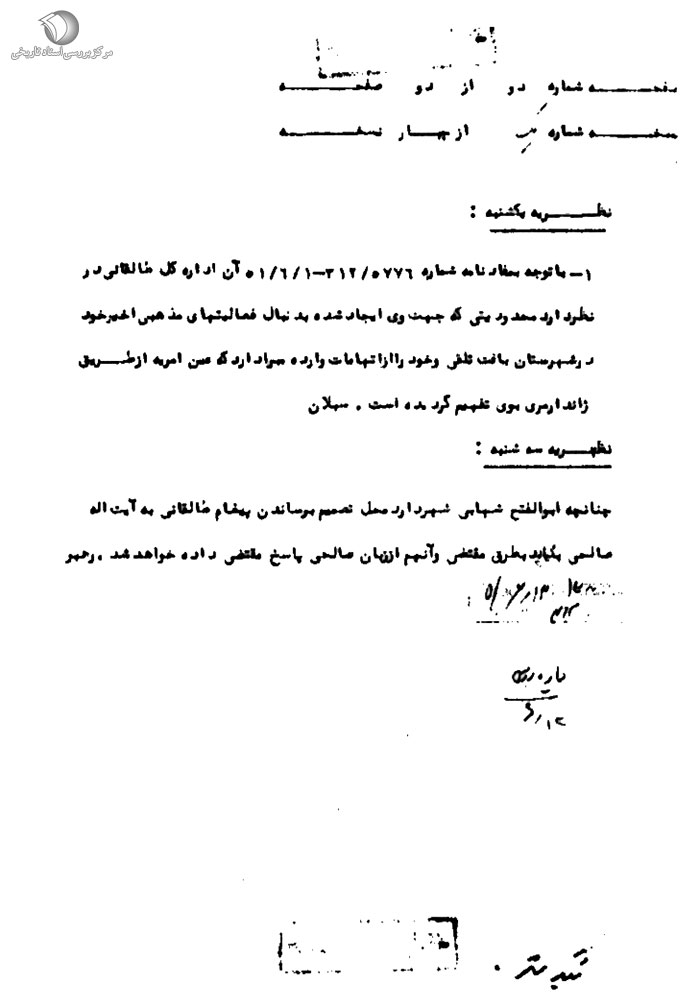 مرکز بررسی اسناد تاریخی
صفحه شماره دو از دو صفحه
نسخه شماره از چهار نسخه
نظریه یکشنبه :
۱- باتوجه بمفاد نامه شماره ۳۱۲/۵۷۷۶-۵۱/۶/۱ آن اداره کل طالقانی در
نظردارد محدودیتی که جهت وی ایجاد شده بدنبال فعالیتهای مذهبی اخیر خود
در شهرستان بافت تلقی وخود را از اتهامات وارده مبرا دارد که عین امریه از طریق
ژاندارمری بوی تفهیم گردیده است . سبلان
نظریه سه شنبه :
چنانچه ابوالفتح شهابی شهردار محل تصمیم برساندن پیغام طالقانی به آیت اله
صالحی بگیرد بطرق مقتضی وآنهم از زبان صالحی پاسخ مقتضی داده خواهد شد . رهبر
۱۲/۶